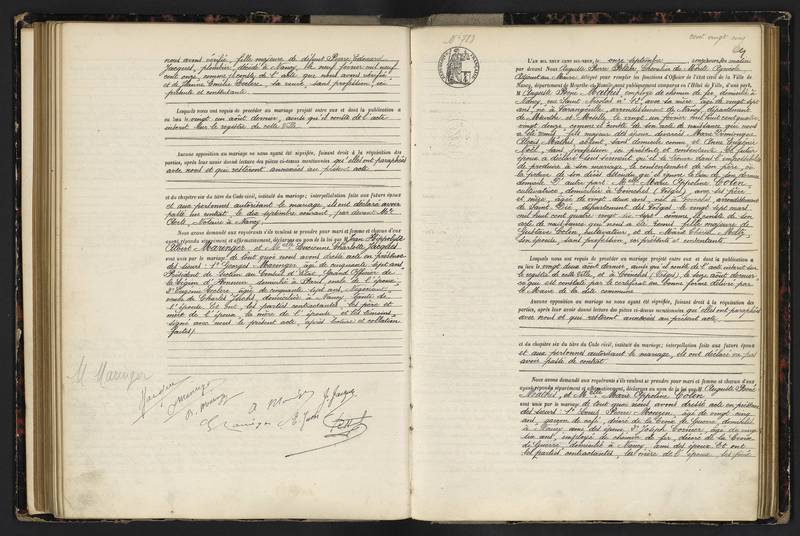 nous avons vérifié, fille majeure de défunt Pierre Edouard
Jacques, plombier, décédé à Nancy, le neuf février mil neuf
cent onze, comme il conste de l'acte que nous avons vérifié,
et de Jeanne Emilie Leclerc, sa veuve, sans profession, ici
présente et consentante.
Lesquels nous ont requis de procéder au mariage projeté entre eux et dont la publication a
eu lieu le vingt un août dernier, ainsi qu'il conste de l'acte
inscrit sur le registre de cette Ville.
Aucune opposition au mariage ne nous ayant été signifiée, faisant droit à la réquisition des
parties, après leur avoir donné lecture des pièces ci-dessus mentionnées, qu'elles ont paraphées
avec nous et qui resteront annexées au présent acte
et du chapitre six du titre du Code civil, intitulé du mariage; interpellation faite aux futurs époux
et aux personnes autorisant le mariage, ils ont déclaré avoir
passé un contrat le dix septembre courant, par devant Me
notaire à Nancy.
Nous avons demandé aux requérants s'ils veulent se prendre pour mari et femme et chacun d'eux
ayant répondu séparément et affirmativement, déclarons au nom de la loi que M. Jean Hippolyte
Albert Maringer et Melle Lucienne Charlotte Jacques
sont unis par le mariage de tout quoi nous avons dressé acte en présence
des sieurs: 1° Georges Maringer, âgé de cinquante sept ans
Président de Section au Conseil d'Etat, Grand Officier de
la Légion d'Honneur, domicilié à Paris, oncle de l'époux,
2° Eugène Leclerc, âgé de cinquante sept ans, Négociant,
domicilié à Nancy,
l'épouse. Et ont les parties contractantes, les père et
mère de l'époux, la mère de l'épouse et les témoins
signé avec nous le présent acte, après lecture et collation
faites.
M Maringer
J. Jacques
N° 783
cent vingt cinq
L'AN MIL NEUF CENT DIX-NEUF, le onze septembre
par devant Nous Auguste Pierre
Adjoint au Maire, délégué pour remplir les fonctions d'Officier de l'état civil de la Ville de
Nancy, département de Meurthe-et-Moselle, sont publiquement comparus en l'Hôtel de Ville, d'une part,
M. Auguste René Mathis, employé de chemin de fer, domicilié à
Nancy, rue Saint Nicolas n° avec sa mère, âgé de vingt sept
ans, né à Varangéville, arrondissement de Nancy, département
de Meurthe et Moselle, le vingt un février mil huit cent quatre
vingt douze, comme il conste de son acte de naissance que nous
sans profession, ici présente et consentante. Le futur
époux a déclaré sous serment qu'il se trouve dans l'impossibilité
de produire à son mariage, le consentement de son père, ou
la preuve de son décès attendu qu'il ignore le lieu de son dernier
domicile. D'autre part: Melle Marie Oppoline Colin,
cultivatrice, domiciliée à avec ses père
et mère, âgée de vingt deux ans, née à arrondissement
de Saint Dié, département des Vosges, le vingt sept mars
mil huit cent quatre vingt dix sept comme il conste de son
acte de naissance qui nous a été remis, fille majeure de
Gustave Colin, cultivateur, et de Marie
son épouse, sans profession, ici présents et consentants.
Lesquels nous ont requis de procéder au mariage projeté entre eux et dont la publication a
eu lieu le vingt deux août dernier, ainsi qu'il conste de l'acte inscrit sur
le registre de cette ville, et à (Vosges), le seize août dernier,
ce qui est constaté par le certificat en bonne forme délivré par
le Maire de la dite commune.
Aucune opposition au mariage ne nous ayant été signifiée, faisant droit à la réquisition des
parties, après leur avoir donné lecture des pièces ci-dessus mentionnées, qu'elles ont paraphées
avec nous et qui resteront annexées au présent acte
et du chapitre six du titre du Code civil, intitulé du mariage; interpellation faite aux futurs époux
et aux personnes autorisant le mariage, ils ont déclaré ne pas
avoir passé de contrat.
Nous avons demandé aux requérants s'ils veulent se prendre pour mari et femme et chacun d'eux
ayant répondu séparément et affirmativement, déclarons au nom de la loi que M. Auguste René
Mathis et Melle Marie Oppoline Colin
sont unis par le mariage de tout quoi nous avons dressé acte en présence
des sieurs: 1° Louis Pierre âgé de vingt cinq
ans, garçon de café, décoré de la Croix de Guerre, domicilié
à Nancy, ami des époux, 2° Joseph âgé de vingt
six ans, employé de chemin de fer, décoré de la Croix
de Guerre, domicilié à Nancy, ami des époux. Et ont
les parties contractantes, la mère de l'époux, les père